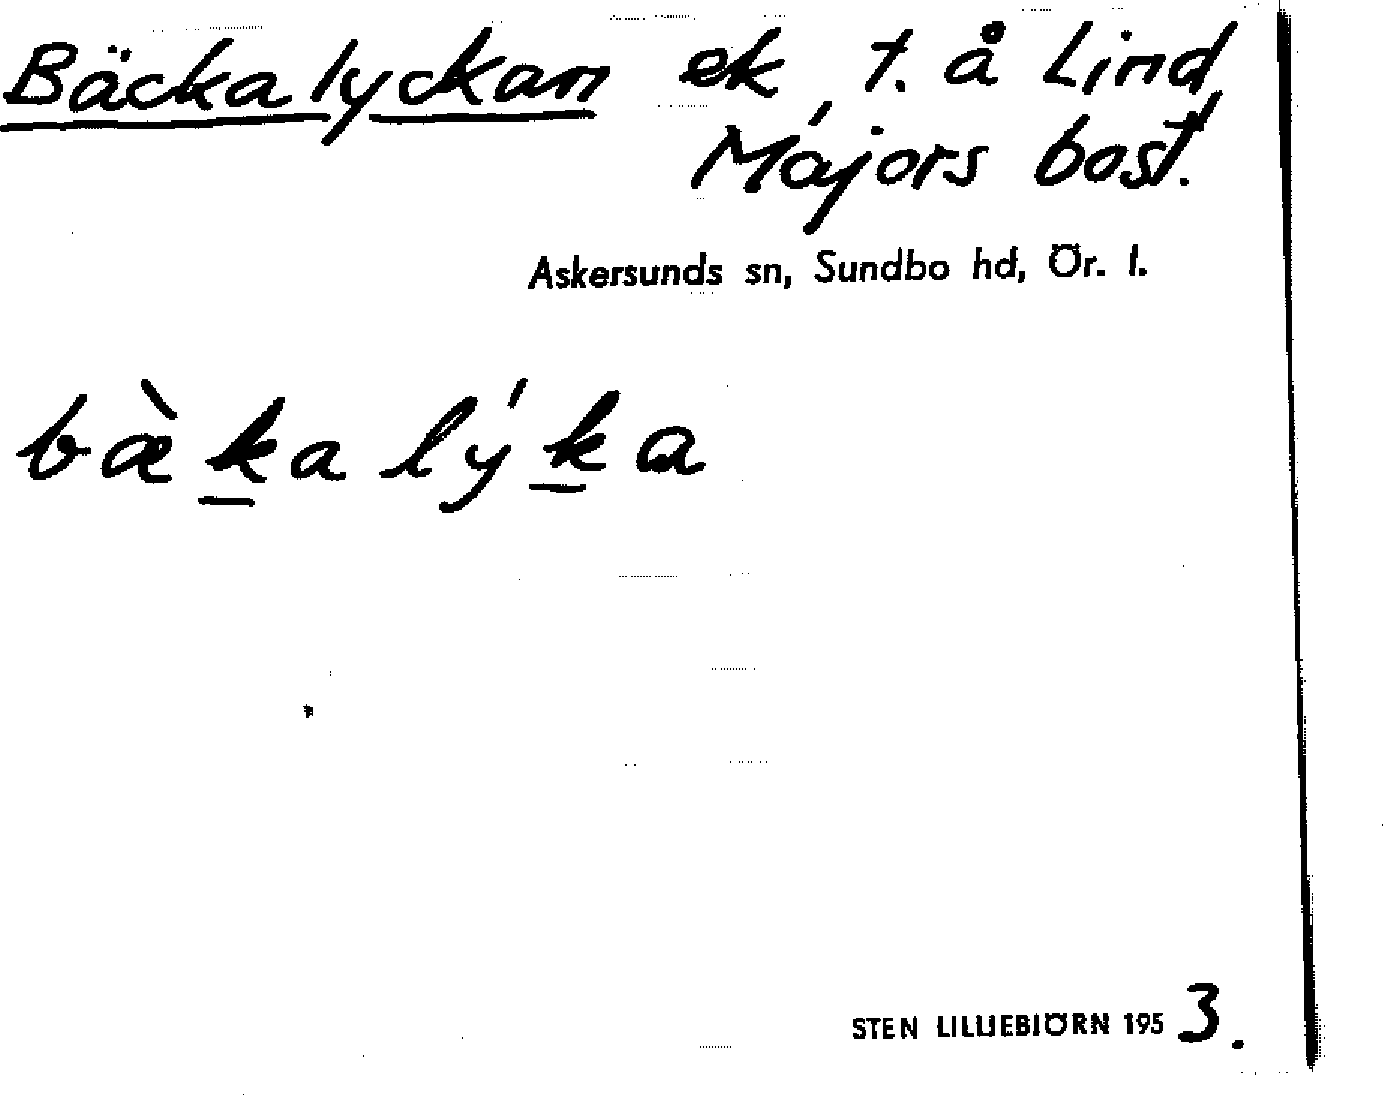 Bäckalyckan ek, t. å Lind,
Majors bost.
Askersunds sn, Sundbo hd, Ör. l.
bæ̀ka lýka
STEN LILLIEBIÖRN 1953.